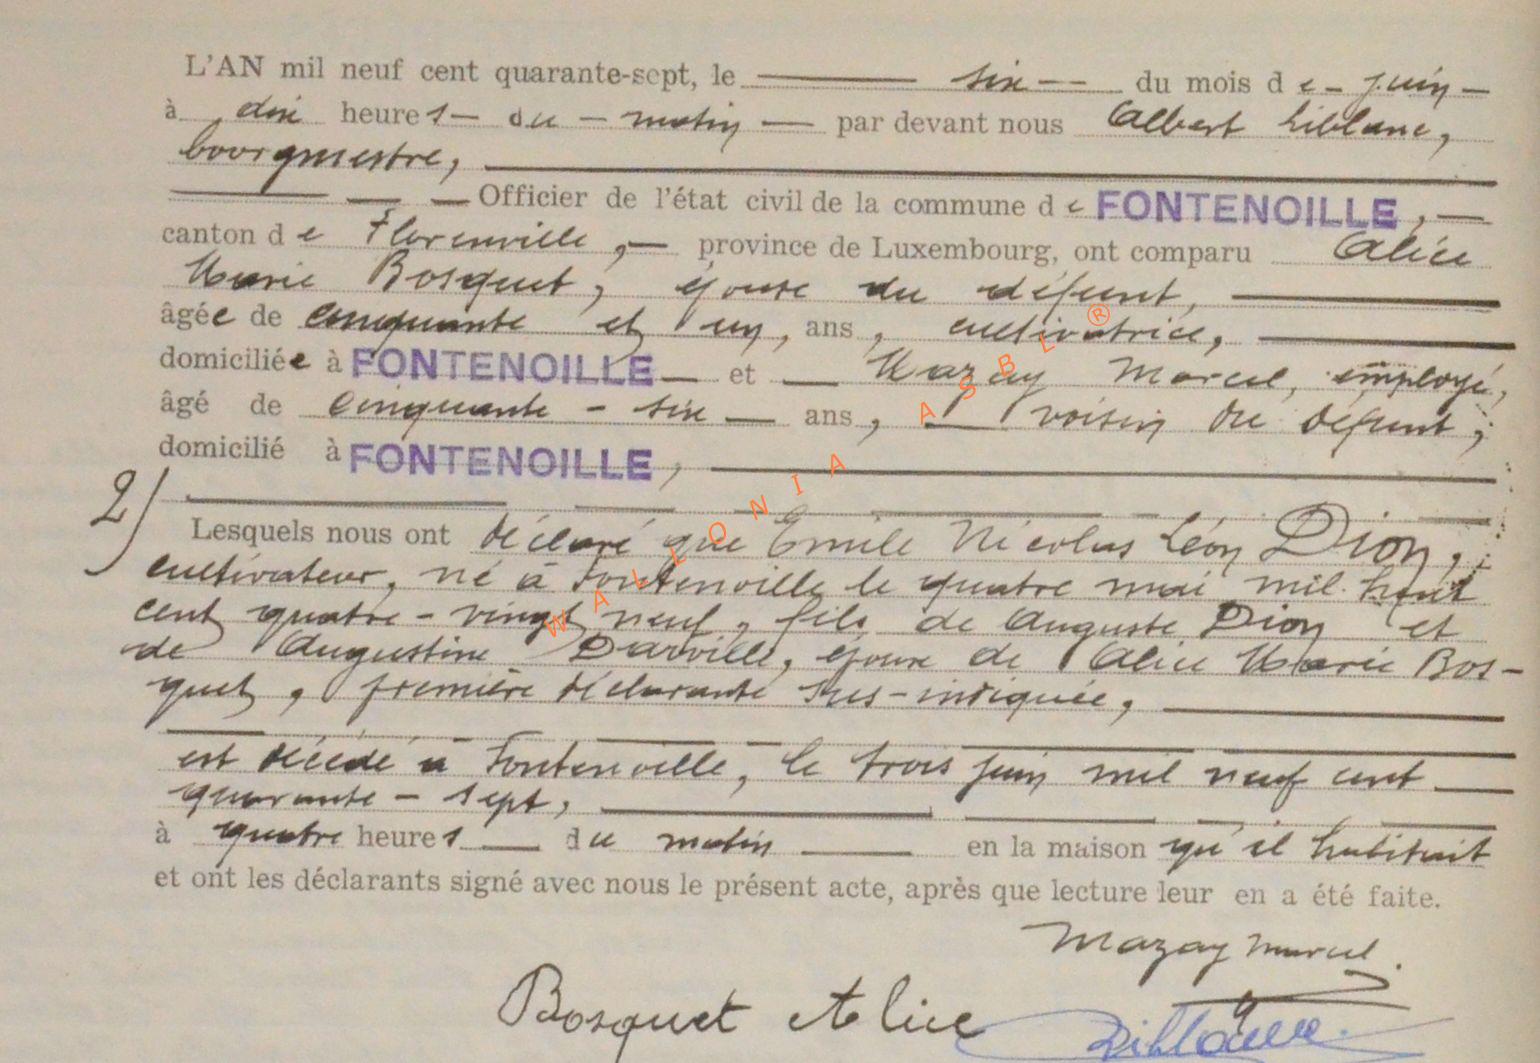 L'AN mil neuf cent quarante-sept, le six du mois de juin
à dix heures du matin par devant nous Albert Liblanc,
bourgmestre,
Officier de l'état civil de la commune de FONTENOILLE,
canton de Florenville, province de Luxembourg, ont comparu Alice
Marie Bosquet, épouse du défunt,
âgée de cinquante et un, ans, cultivatrice,
domiciliée à FONTENOILLE et Mazay Marcel, employé,
âgé de cinquante-six ans, voisin du défunt,
domicilié à FONTENOILLE,
2/
Lesquels nous ont déclaré que Emile Nicolas Léon Dion,
cultivateur, né à Fontenoille le quatre mai mil huit
cent quatre-vingt neuf, fils de Auguste Dion et
de Augustine Darville, époux de Alice Marie Bos-
quet, première déclarante sus-indiquée,
est décédé à Fontenoille, le trois juin mil neuf cent
quarante-sept,
à quatre heures du matin en la maison qu'il habitait
et ont les déclarants signé avec nous le présent acte, après que lecture leur en a été faite.
Mazay Marcel.
Bosquet Alice
WALLONIA ASBL ®